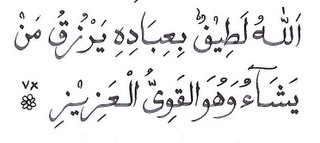 اَللّٰهُ لَطِيْفٌ بِعِبَادِهِ يَرْزُقُ مَنْ
يَشَآءُ وَهُوَ القَوِىُّ الْعَزِيْزِ ٧x